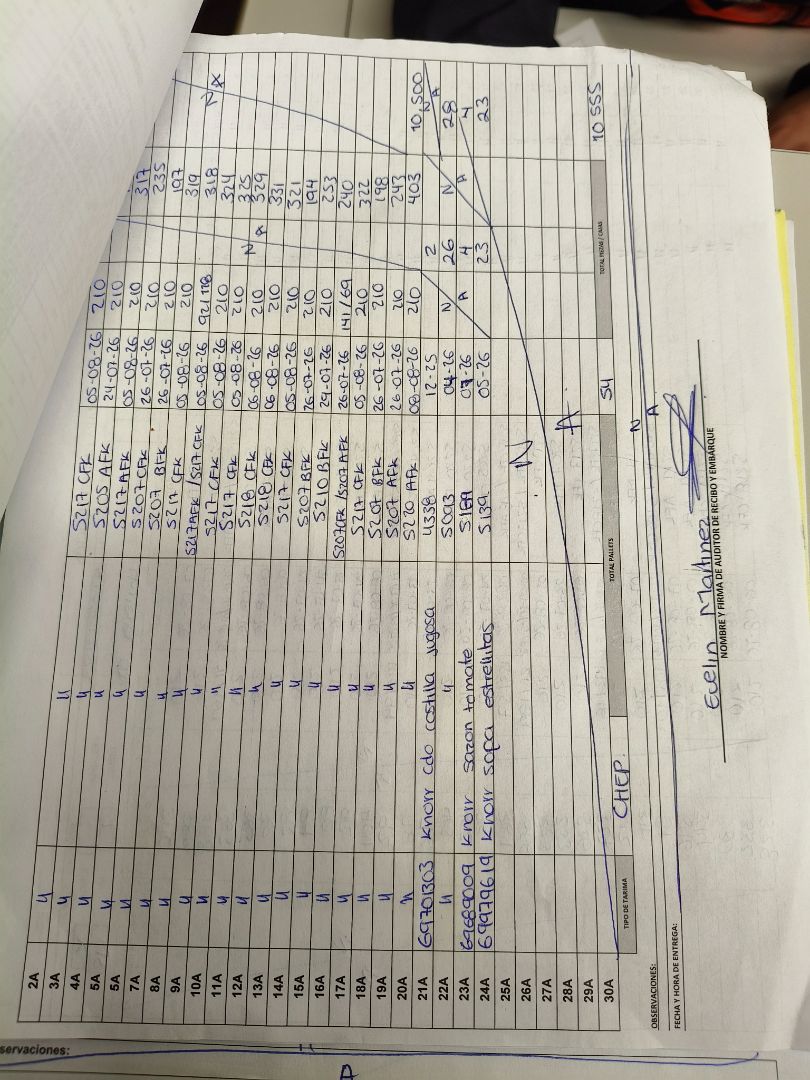 2A " " 5217 CFK 05-08-26 210
3A " " 5205 AFK 24-07-26 210
4A " " 5217 AFK 05-08-26 210 317
5A " " 5207 CFK 26-07-26 210 235
5A " " 5207 BFK 26-07-26 210 197
7A " " 5217 CFK 05-08-26 210 319
10A " " 5217AFK/5217 CFK 05-08-26 92/118 318
8A " " 5217 CFK 05-08-26 210 324 NA
9A " " 5217 CFK 05-08-26 210 325
11A " " 5218 CFK 06-08-26 210 NA 329
12A " " 5218 CFK 06-08-26 210 331
13A " " 5217 CFK 05-08-26 210 321
14A " " 5207 BFK 26-07-26 210 194
15A " " 5210 BFK 29-07-26 210 253
16A " " 5207CFK/5207AFK 26-07-26 141/69 240
17A " " 5217 CFK 05-08-26 210 322
18A " " 5207 BFK 26-07-26 210 198
19A " " 5207 AFK 26-07-26 210 243
20A " " 5220 AFK 08-08-26 210 403 10,500
21A 69701303 Knorr cdo costilla jugosa 4338 12-25 2 NA
22A " " 5093 04-26 NA 26 NA 28
23A 69689009 Knorr sazon tomate 5169 07-26 4 4
24A 69979619 Knorr sopa estrellitas 5139 05-26 23 23
25A
26A NA
27A
28A
29A
30A
TIPO DE TARIMA CHEP. TOTAL PALLETS 54 TOTAL PIEZAS / CAJAS 10 555
OBSERVACIONES: NA
FECHA Y HORA DE ENTREGA:
Evelin Martinez
NOMBRE Y FIRMA DE AUDITOR DE RECIBO Y EMBARQUE
servaciones:
A